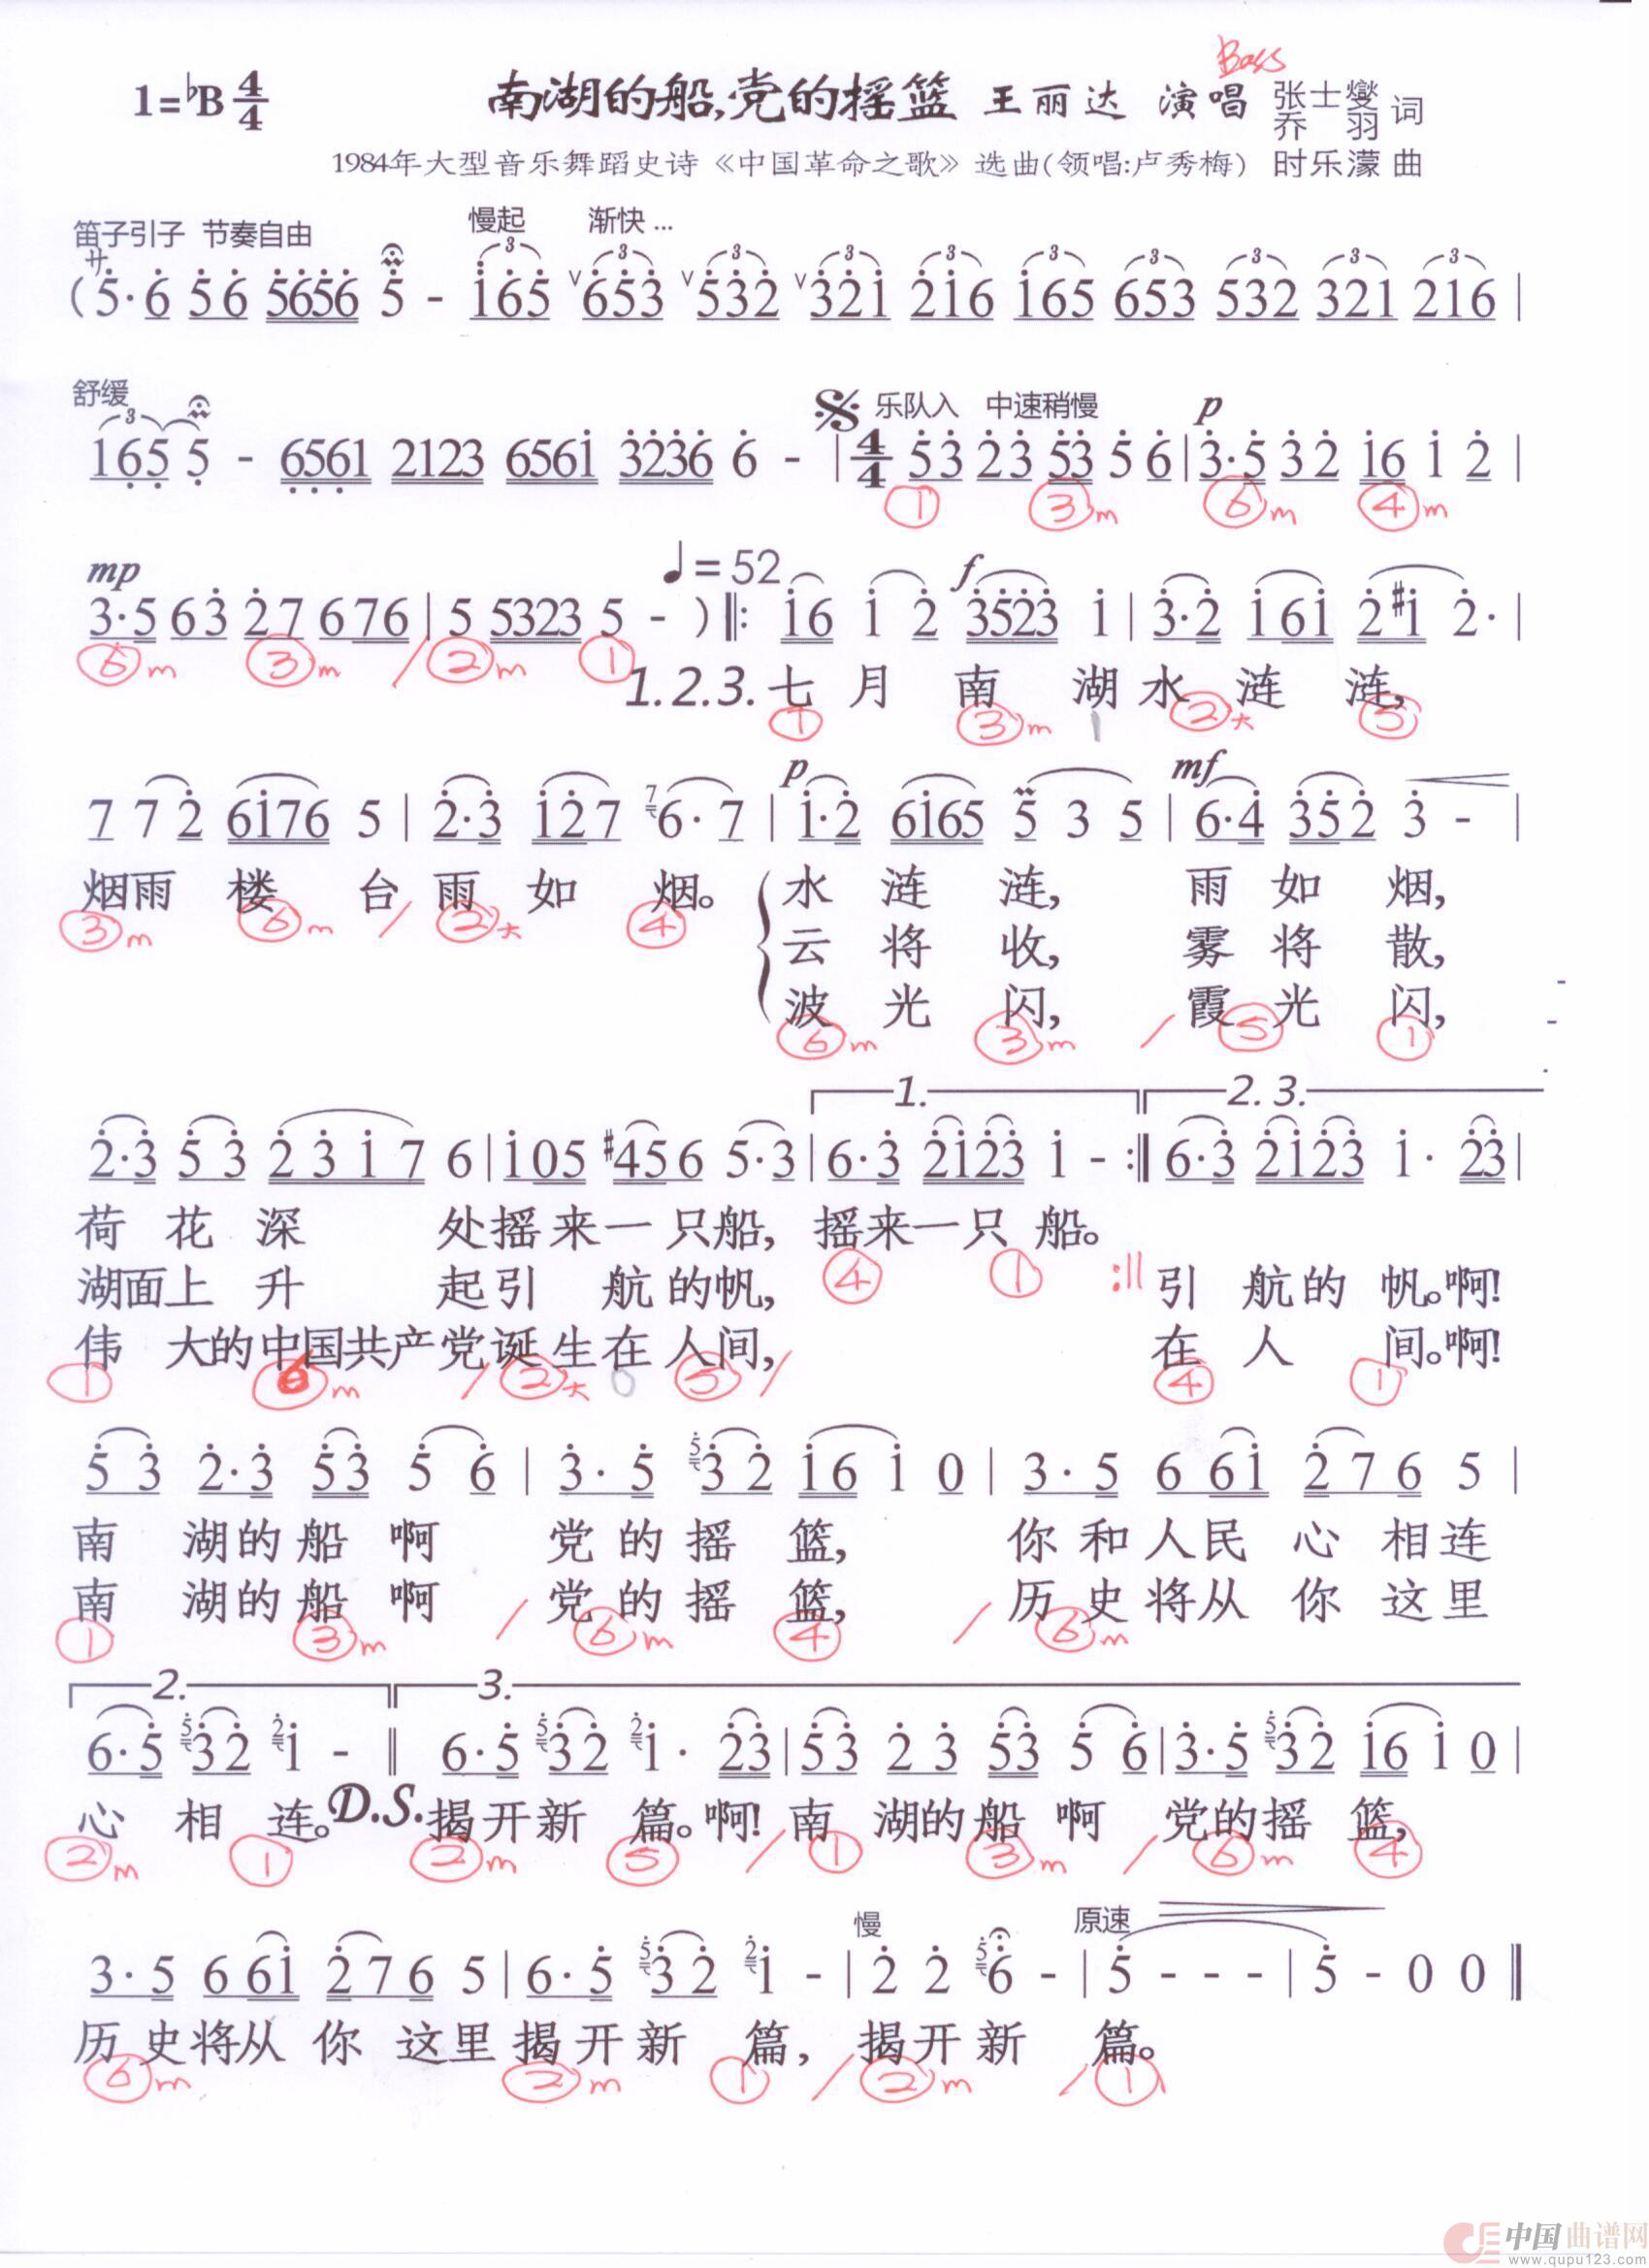 Bass
1=♭B 4/4 南湖的船,党的摇篮 王丽达 演唱 张士燮 乔羽 词
1984年大型音乐舞蹈史诗《中国革命之歌》选曲(领唱:卢秀梅) 时乐濛 曲
笛子引子 节奏自由 慢起 渐快...
(5·6 56 5656 5 - 165 653 532 321 216 165 653 532 321 216 |
舒缓 乐队入 中速稍慢 p
165 5 - 6561 2123 6561 3236 6 - | 4/4 53 23 53 5 6 | 3·5 32 16 1 2 |
① ③m ⑥m ④m
mp ♩=52 f
3·5 63 27 676 | 5 5323 5 - ) ‖: 16 1 2 3523 1 | 3·2 161 2#1 2· |
⑥m ③m / ②m ①
1.2.3. 七月南湖水涟涟,
① ③m ②大 ⑤
p mf
7 7 2 6176 5 | 2·3 127 7 6·7 | 1·2 6165 5 3 5 | 6·4 352 3 - |
烟雨楼台雨如烟。 水涟涟, 雨如烟,
③m ⑥m / ②大 ④
云将收, 雾将散,
波光闪, 霞光闪,
⑥m ③m / ⑤ ①
1. 2.3.
2·3 53 2 3 1 7 6 | 105 #456 5·3 | 6·3 2123 1 - :‖ 6·3 2123 1· 23 |
荷花深处摇来一只船, 摇来一只船。
④ ① :||
湖面上升起引航的帆, 引航的帆。啊!
伟大的中国共产党诞生在人间, 在人间。啊!
① ⑥m / ②大 ⑤ / ④ ①
5 3 2·3 53 5 6 | 3·5 5 32 16 1 0 | 3·5 6 61 2 7 6 5 |
南湖的船啊党的摇篮, 你和人民心相连
南湖的船啊党的摇篮, 历史将从你这里
① ③m / ⑥m ④ / ⑥m
2. 3.
6·5 5 32 2 1 - ‖ 6·5 5 32 2 1· 23 | 53 2 3 53 5 6 | 3·5 5 32 16 1 0 |
心相连。D.S. 揭开新篇。啊!南湖的船啊党的摇篮,
②m ① ②m ⑤ / ① ③m / ⑥m ④
慢 原速
3·5 6 61 2 7 6 5 | 6·5 5 32 2 1 - | 2 2 5 6 - | 5 - - - | 5 - 0 0 ‖
历史将从你这里揭开新篇, 揭开新篇。
⑥m ②m ① / ②m / ①
中国曲谱网
www.qupu123.com